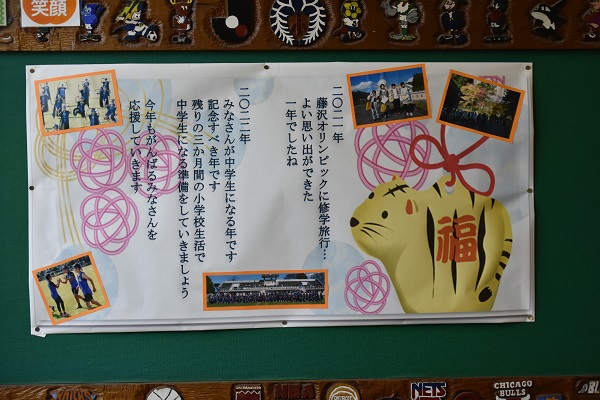 笑顔
二〇二一年
藤沢オリンピックに修学旅行…
よい思い出ができた
一年でしたね
二〇二二年
みなさんが中学生になる年です
記念すべき年です
残りの三か月間の小学校生活で
中学生になる準備をしていきましょう
今年もがんばるみなさんを
応援していきます
福
NBA
NETS
CHICAGO
BULLS